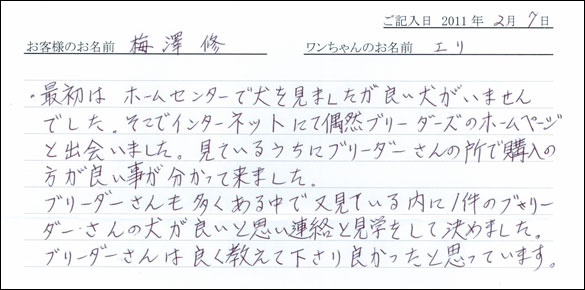 ご記入日 2011年 2月 7日
お客様のお名前 梅澤 修 ワンちゃんのお名前 エリ
・最初は ホームセンターで犬を見ましたが良い犬がいません
でした。そこでインターネットにて偶然ブリーダーズのホームページ
と出会いました。見ているうちにブリーダーさんの所で購入の
方が良い事が分かって来ました。
ブリーダーさんも多くある中で又見ている内に1件のブリー
ダーさんの犬が良いと思い連絡と見学をして決めました。
ブリーダーさんは良く教えて下さり良かったと思っています。